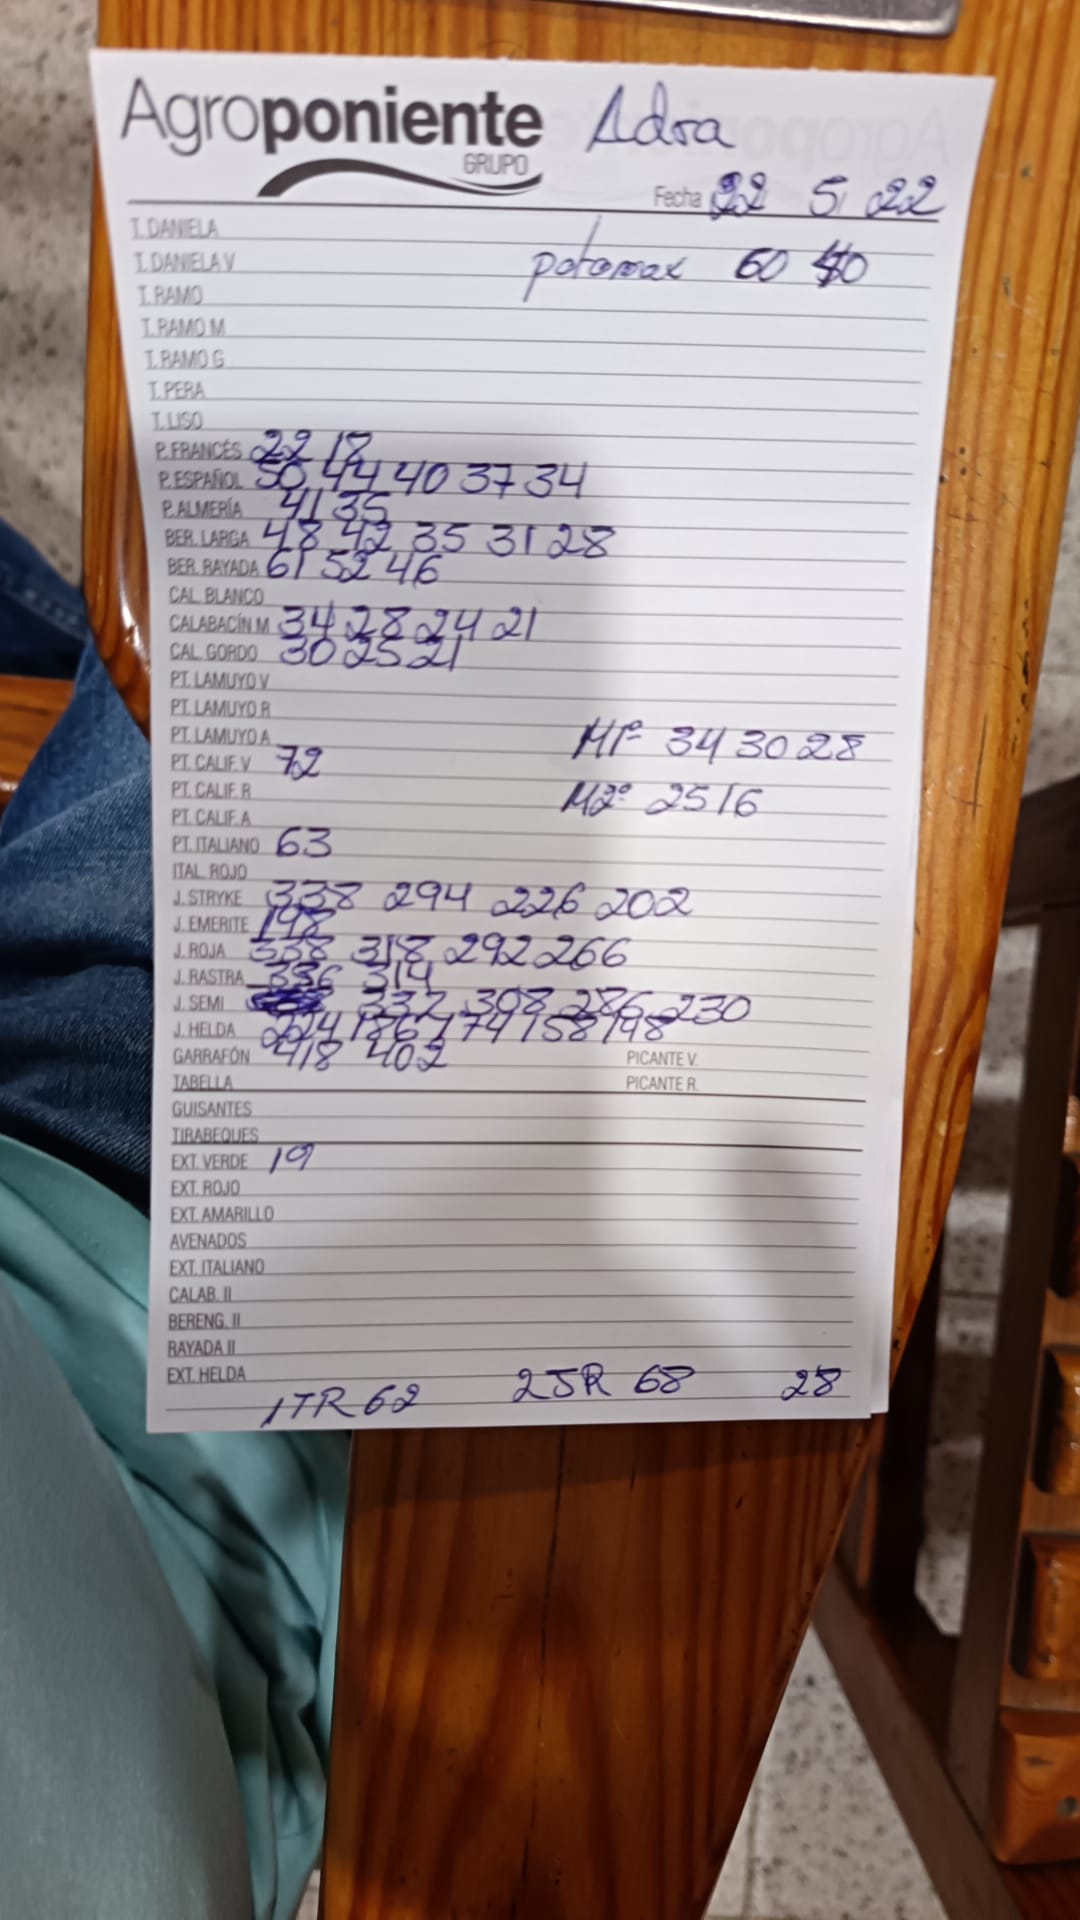 Agroponiente Adra
GRUPO
Fecha 22 5 22
T. DANIELA
T. DANELA V potamax 60 40
T. RAMO
T. RAMO M
T. RAMO G
T. PERA
T. LISO
P. FRANCÉS 22 18
P. ESPAÑOL 50 44 40 37 34
P. ALMERÍA 41 35
BER. LARGA 48 42 35 31 28
BER. RAYADA 61 52 46
CAL. BLANCO
CALABACÍN M 34 28 24 21
CAL. GORDO 30 25 21
PT. LAMUYO V
PT. LAMUYO R
PT. LAMUYO A M1º 34 30 28
PT. CALIF. V 72
PT. CALIF. R M2º 25 16
PT. CALIF. A
PT. ITALIANO 63
ITAL. ROJO
J. STRYKE 338 294 226 202
J. EMERITE 198
J. ROJA 338 318 292 266
J. RASTRA 336 314
J. SEMI 332 308 286 230
J. HELDA 224 186 174 158 148
GARRAFÓN 418 402 PICANTE V.
TABELLA PICANTE R.
GUISANTES
TIRABEQUES
EXT. VERDE 19
EXT. ROJO
EXT. AMARILLO
AVENADOS
EXT. ITALIANO
CALAB. II
BERENG. II
RAYADA II
EXT. HELDA
1TR 62 2JR 68 28